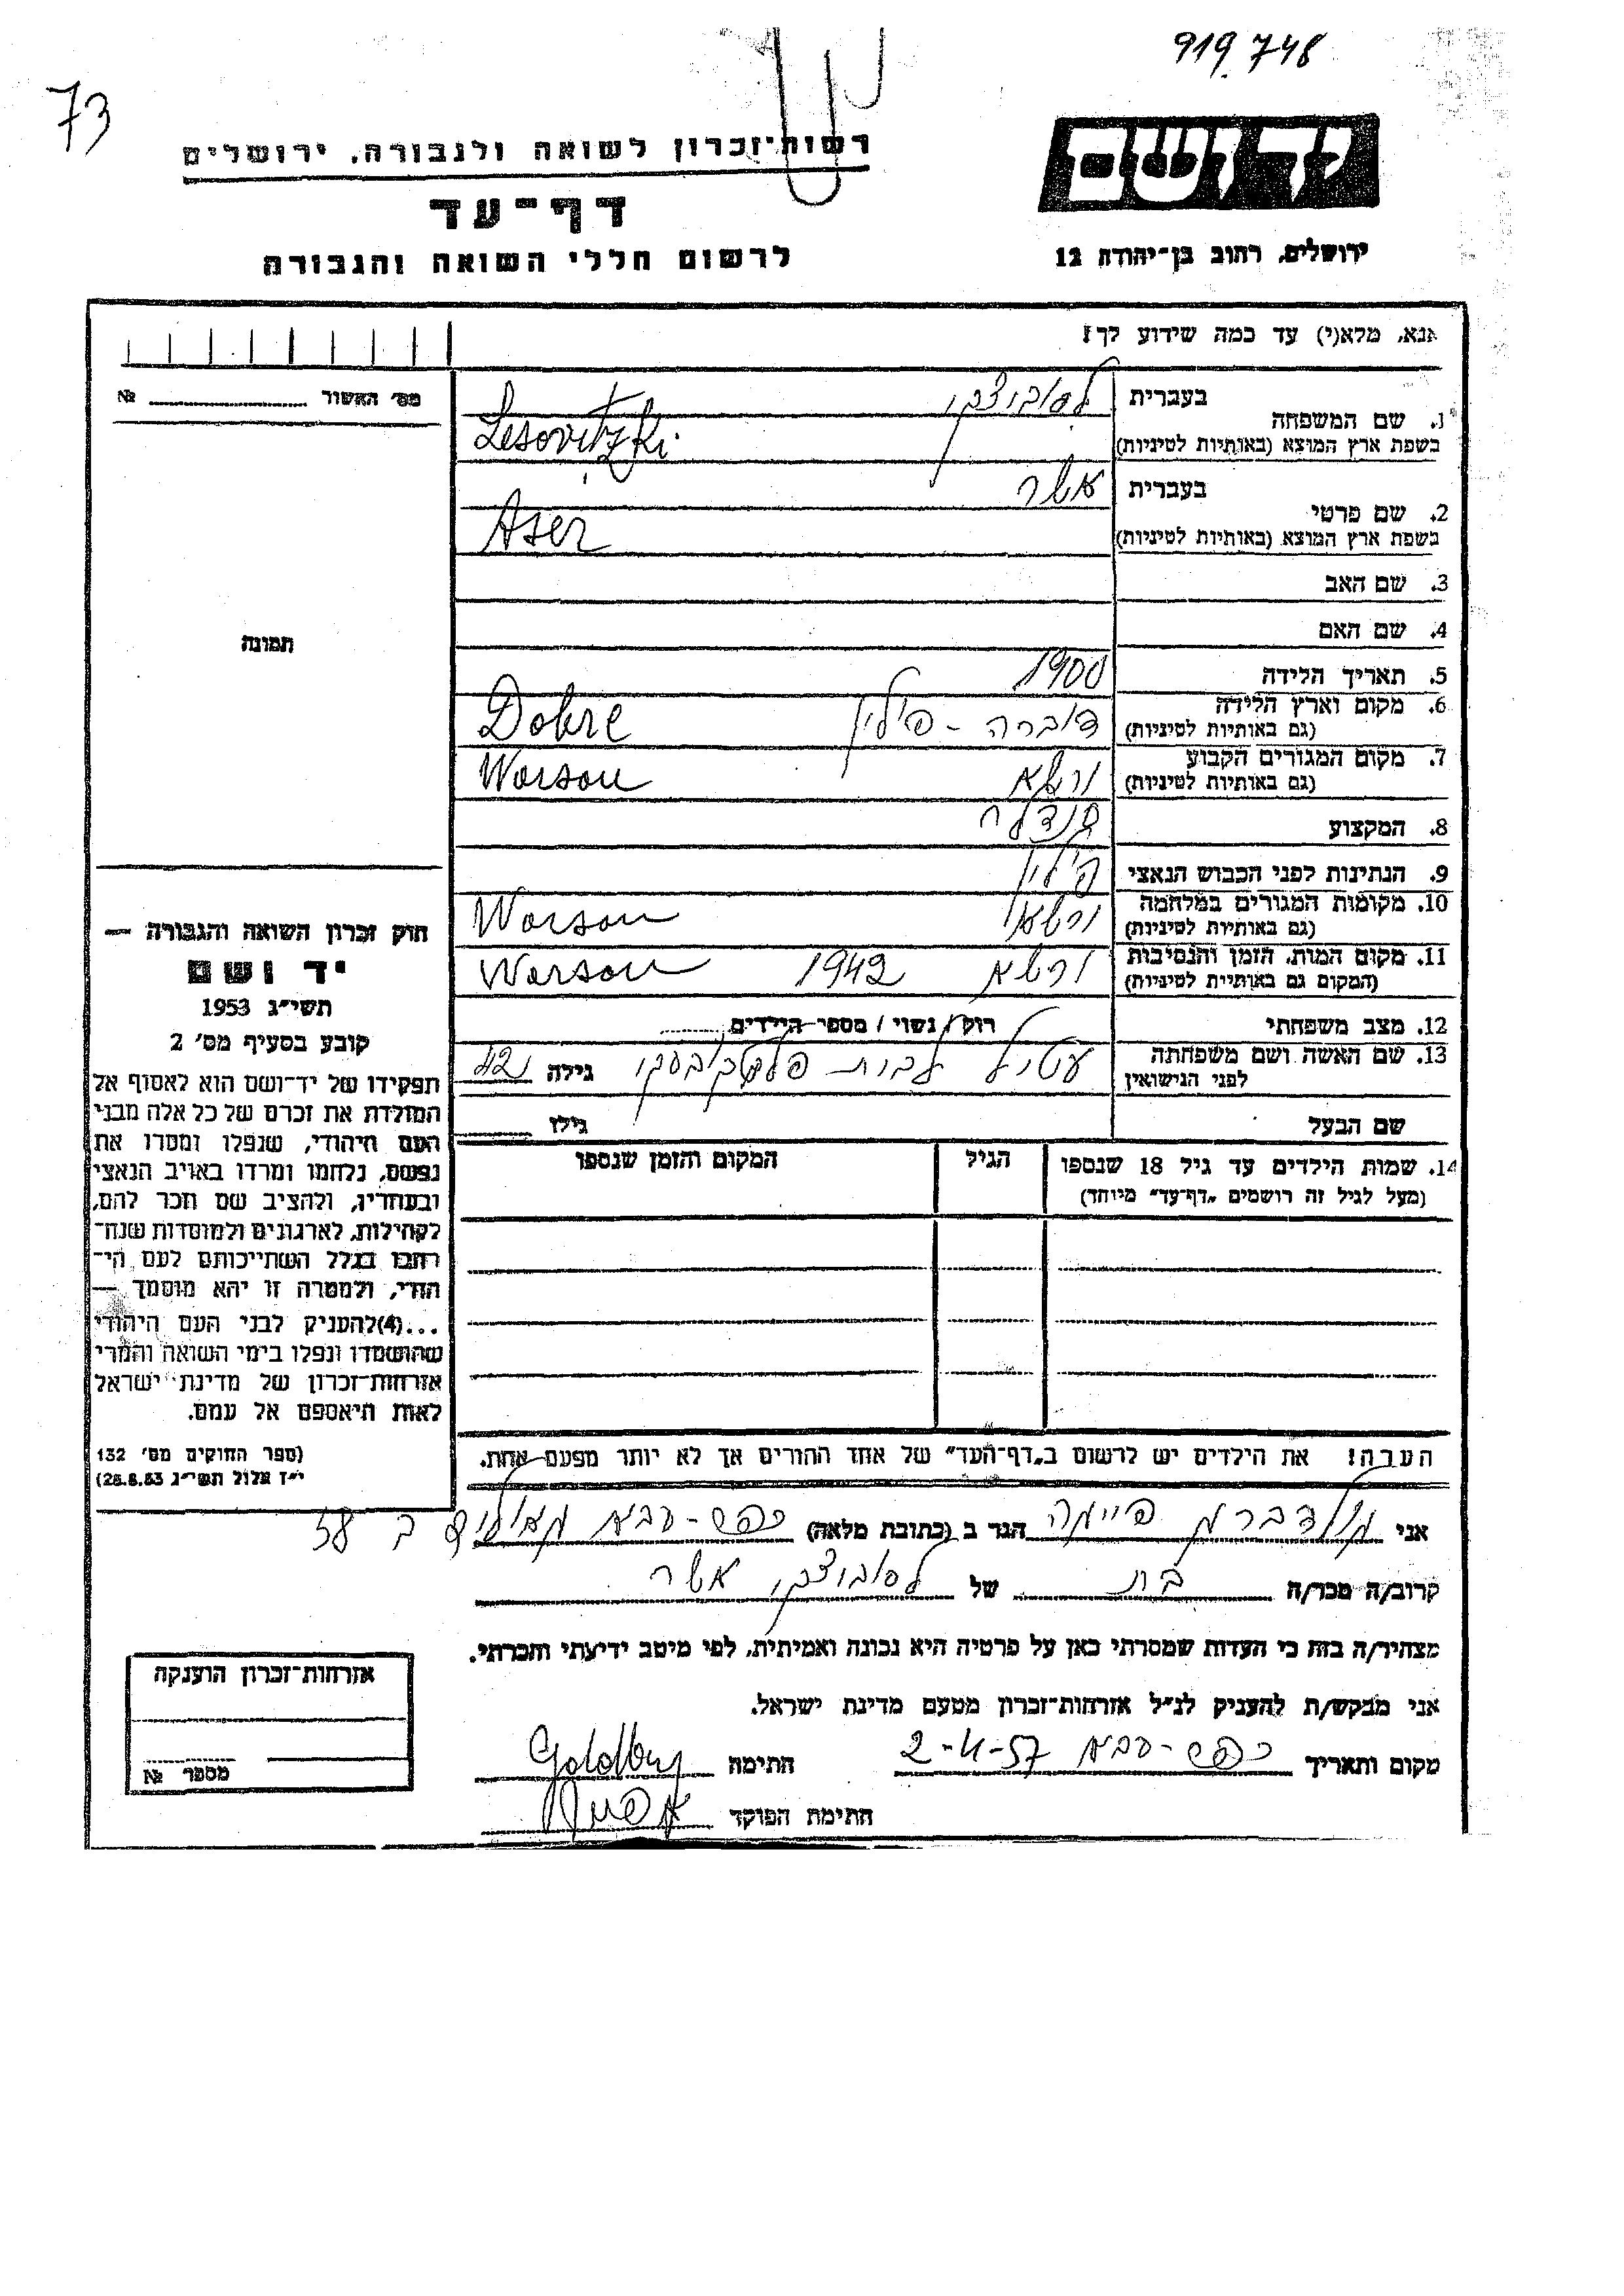 919.748
73
יד ושם
ירושלים, רחוב בן־יהודה 12
רשות־זכרון לשואה ולגבורה, ירושלים
דף־עד
לרשום חללי השואה והגבורה
אנא, מלא(י) עד כמה שידוע לך!
1. שם המשפחה בעברית לסוביצקי
בשפת ארץ המוצא (באותיות לטיניות) Lesovitzki
2. שם פרטי בעברית אשר
בשפת ארץ המוצא (באותיות לטיניות) Aser
3. שם האב
4. שם האם
5. תאריך הלידה 1900
6. מקום וארץ הלידה דוברה - פולין Dobre
(גם באותיות לטיניות)
7. מקום המגורים הקבוע ורשא Worsou
(גם באותיות לטיניות)
8. המקצוע
9. הנתינות לפני הכבוש הנאצי פולין
10. מקומות המגורים במלחמה ורשא Worsou
(גם באותיות לטיניות)
11. מקום המות, הזמן והנסיבות ורשא 1942 Worsou
(המקום גם באותיות לטיניות)
12. מצב משפחתי רוק / נשוי / מספר הילדים
13. שם האשה ושם משפחתה לפני הנישואין לבית גילה 42
שם הבעל גילו
14. שמות הילדים עד גיל 18 שנספו הגיל המקום והזמן שנספו
(מעל לגיל זה רושמים "דף־עד" מיוחד)
הערה! את הילדים יש לרשום ב"דף־העד" של אחד ההורים אך לא יותר מפעם אחת.
אני גולדברג הגר ב (כתובת מלאה) כפר-סבא
קרוב/ה מכר/ה בת של לסוביצקי אשר
מצהיר/ה בזה כי העדות שמסרתי כאן על פרטיה היא נכונה ואמיתית, לפי מיטב ידיעתי והכרתי.
אני מבקש/ת להעניק לנ"ל אזרחות־זכרון מטעם מדינת ישראל.
מקום ותאריך כפר-סבא 2-4-57 חתימה Goldberg
חתימת הפוקד
מס' האשור №
תמונה
חוק זכרון השואה והגבורה —
יד ושם
תשי"ג 1953
קובע בסעיף מס' 2
תפקידו של יד־ושם הוא לאסוף אל
המולדת את זכרם של כל אלה מבני
העם היהודי, שנפלו ומסרו את
נפשם, נלחמו ומרדו באויב הנאצי
ובעוזריו, ולהציב שם וזכר להם,
לקהילות, לארגונים ולמוסדות שנח־
רבו בגלל השתייכותם לעם הי־
הודי, ולמטרה זו יהא מוסמך —
...(4)להעניק לבני העם היהודי
שהושמדו ונפלו בימי השואה והמרי
אזרחות־זכרון של מדינת ישראל
לאות היאספם אל עמם.
(ספר החוקים מס' 132
י"ז אלול תשי"ג 28.8.53)
אזרחות־זכרון הוענקה
מספר №